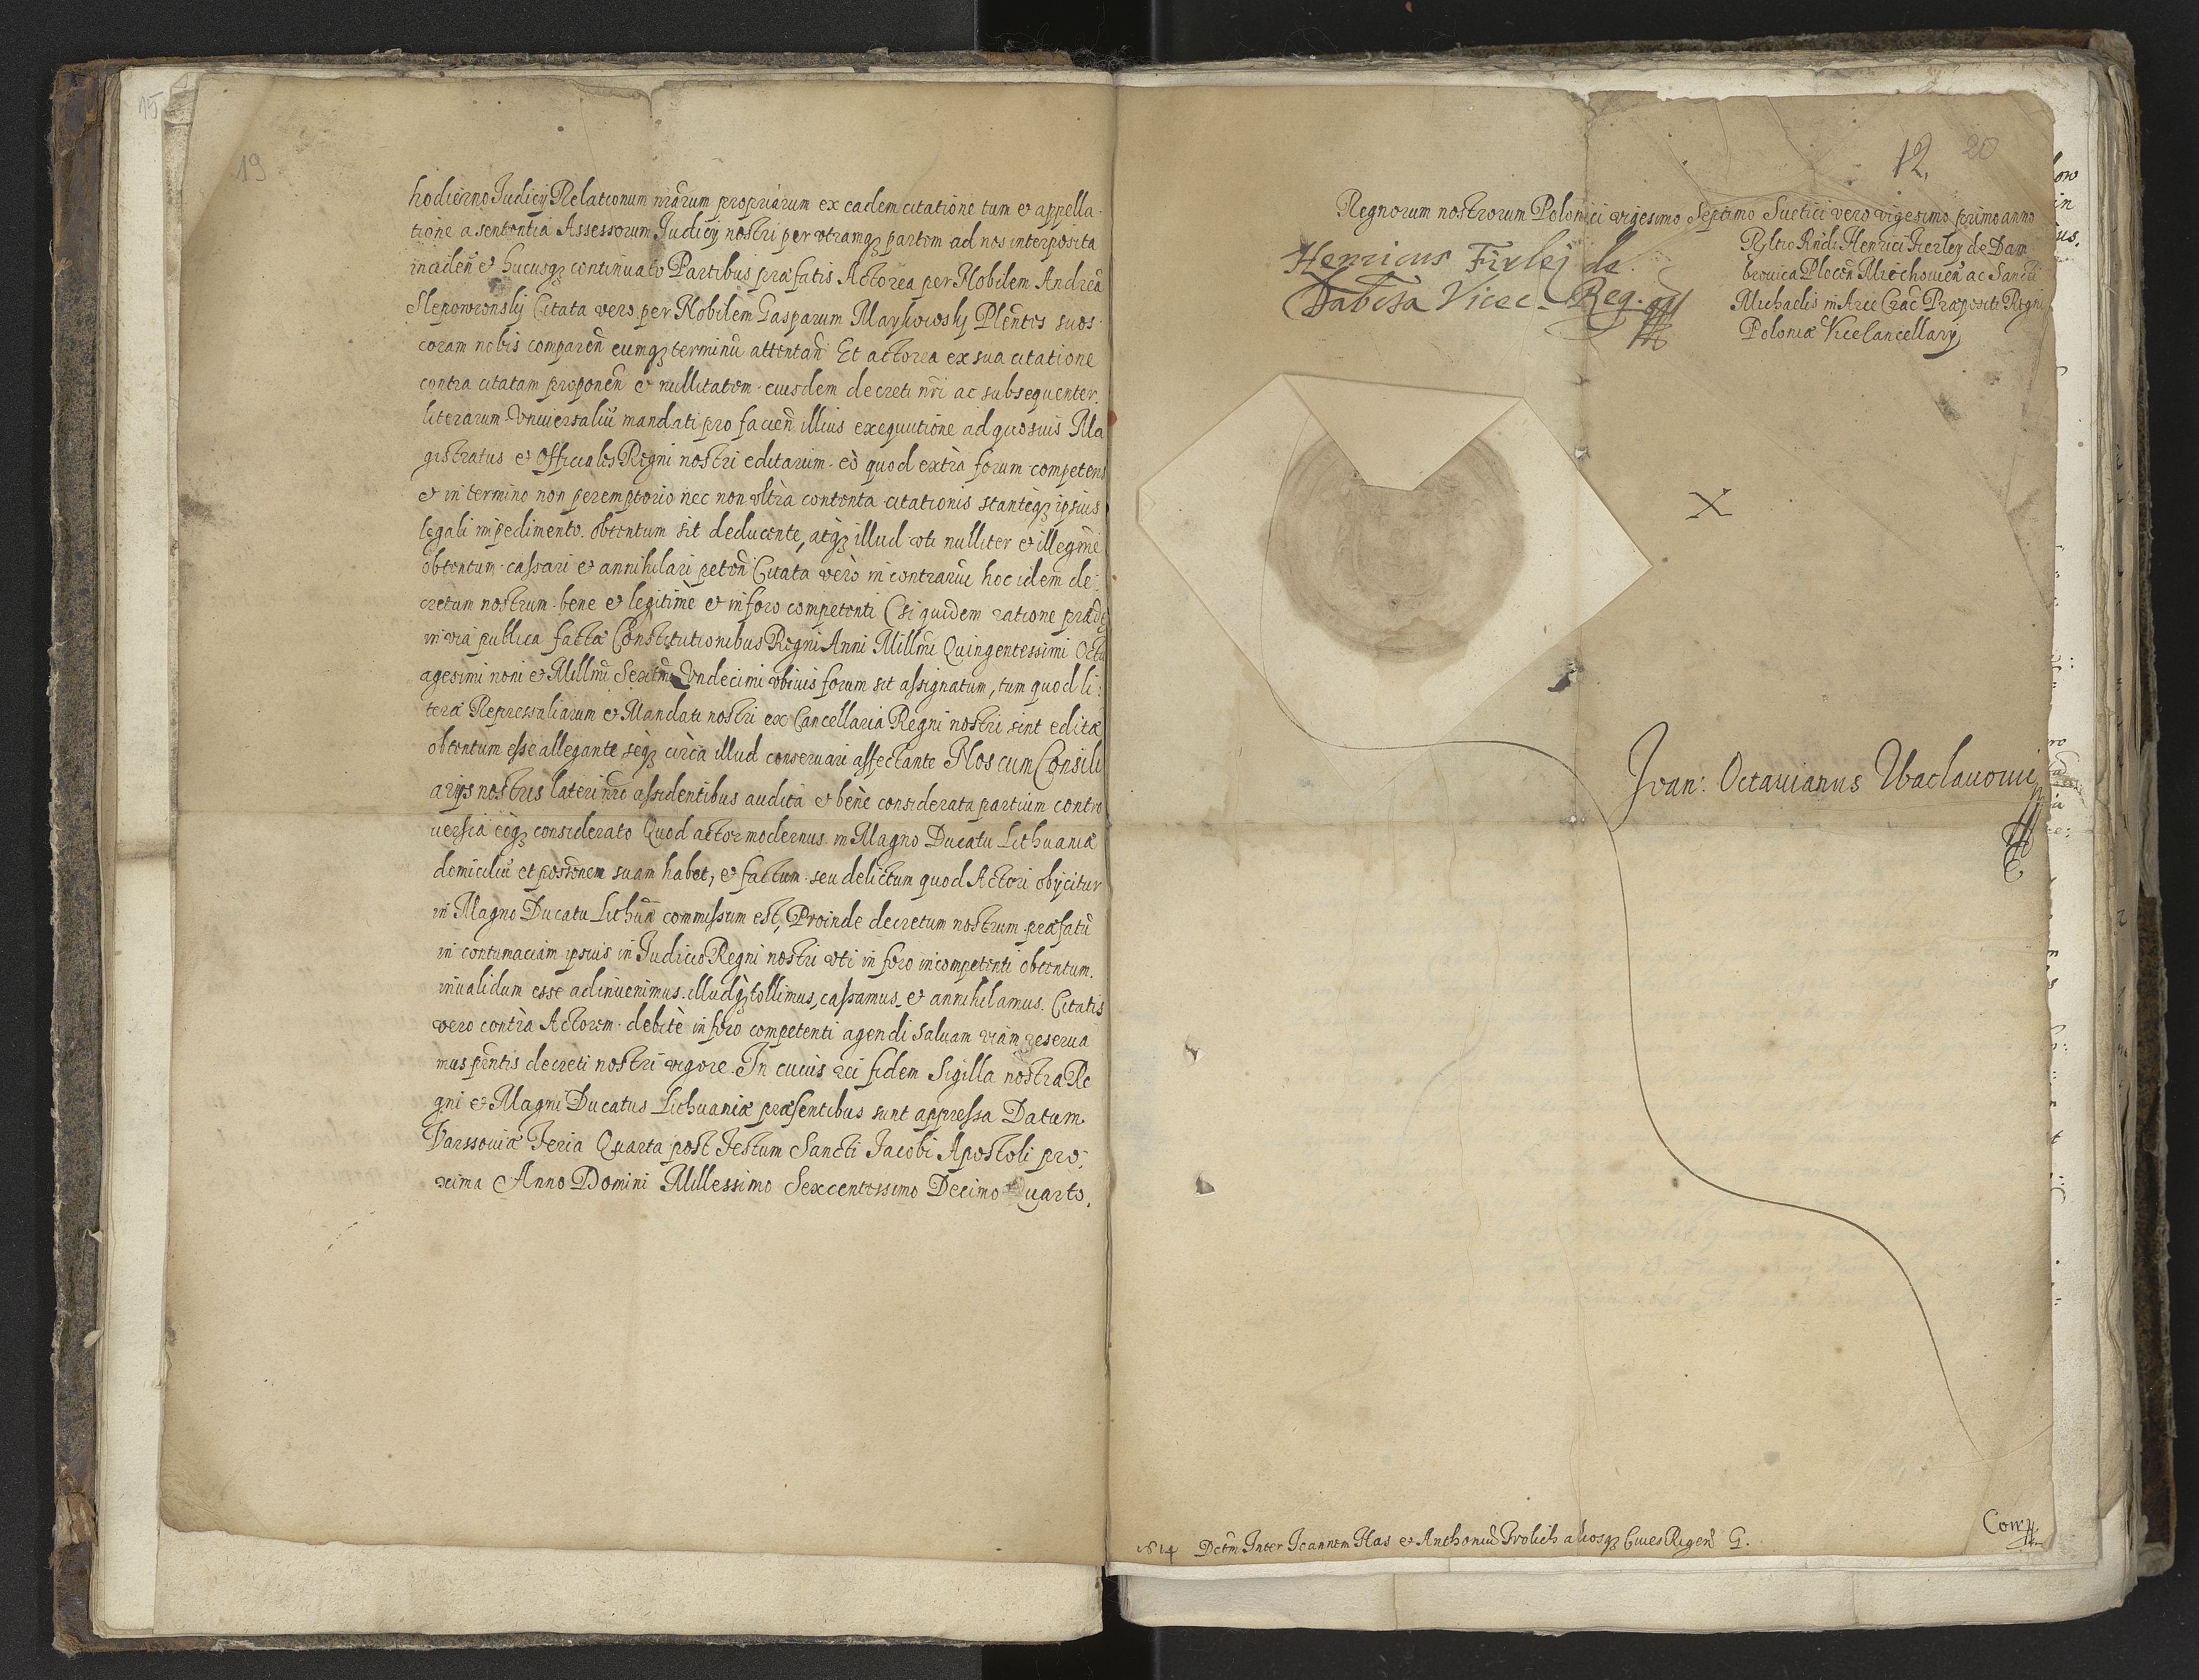 15
19
hodierno Judicy Relationum nrarum propriarum ex eadem citatione tum et appella-
tione a sententia Assessorum Judicy nostri per utramq; partem ad nos interposita
inciden̄ et hucusq; continuato Partibus præfatis Actorea per Nobilem Andrea
Slepowronsky Citata vero per Nobilem Gasparum Maykowsky Plēntes suos
coram nobis comparen̄ eumq; terminū attentan̄ Et actorea ex sua citatione
contra citatam proponen̄ et nullitatem eiusdem decreti nri ac subsequenter
literarum Vniuersaliū mandati pro facien̄ illius exequutione ad quosuis Ma
gistratus et Officiales Regni nostri editarum eò quod extra forum competens
et in termino non peremptorio nec non ultra contenta citationis stanteq; ipsius
legali impedimento obtentum sit deducente, atq; illud uti nulliter et illegitime
obtentum cassari et annihilari peten̄ Citata verò in contrariū hoc idem de:
cretum nostrum bene et legitimè et in foro competenti (si quidem ratione præde
in via publica facta Constitutionibus Regni Anni Millmi Quingentessimi Octu
agesimi noni et Millmi Sexctmi Vndecimi ubiuis forum sit assignatum, tum quod li:
teræ Repressaliarum et Mandati nostri ex Cancellaria Regni nostri sint editæ
obtentum esse allegante seq; circa illud conseruari affectante Nos cum Consili
arijs nostris lateri nro assidentibus audita et bene considerata partium contro
uersia eoq; considerato Quod actor modernus in Magno Ducatu Lithuaniæ
domiciliū et possonem suam habet, et factum seu delictum quod Actori obijcitur
in Magno Ducatu Lithuan̄ commissum est, Proinde decretum nostrum præfatū
in contumaciam ipsius in Judicio Regni nostri uti in foro incompetenti obtentum
inualidum esse adinuenimus illudq; tollimus, cassamus et annihilamus. Citatis
vero contra Actorem debitè in foro competenti agendi saluam viam reserua
mus pn̄tis decreti nostri vigore. In cuius rei fidem Sigilla nostra Re
gni et Magni Ducatus Lithuaniæ præsentibus sunt appressa Datum
Varssouiæ Feria Quarta post Festum Sancti Jacobi Apostoli pro:
xima Anno Domini Millessimo Sexcentessimo Decimo Quarto.
12, 20
Regnorum nostrorum Polonici vigesimo Septimo Suetici vero vigesimo primo anno
Henricus Firlej de
Dabrowica Vicec. Reg.
Rltio Rndi Henrici Fierley de Dam
browica Plocen̄ Miechouien̄ ac Sancti
Michaelis in Arce Crac Præpositi Regni
Poloniæ Vicecancellary
X
Ioan: Octauianus Wacłauowic
Corr
1614 Dctm Inter Joannem Has et Anthoniū Frolich aliosq; Ciues Rigen̄ G.